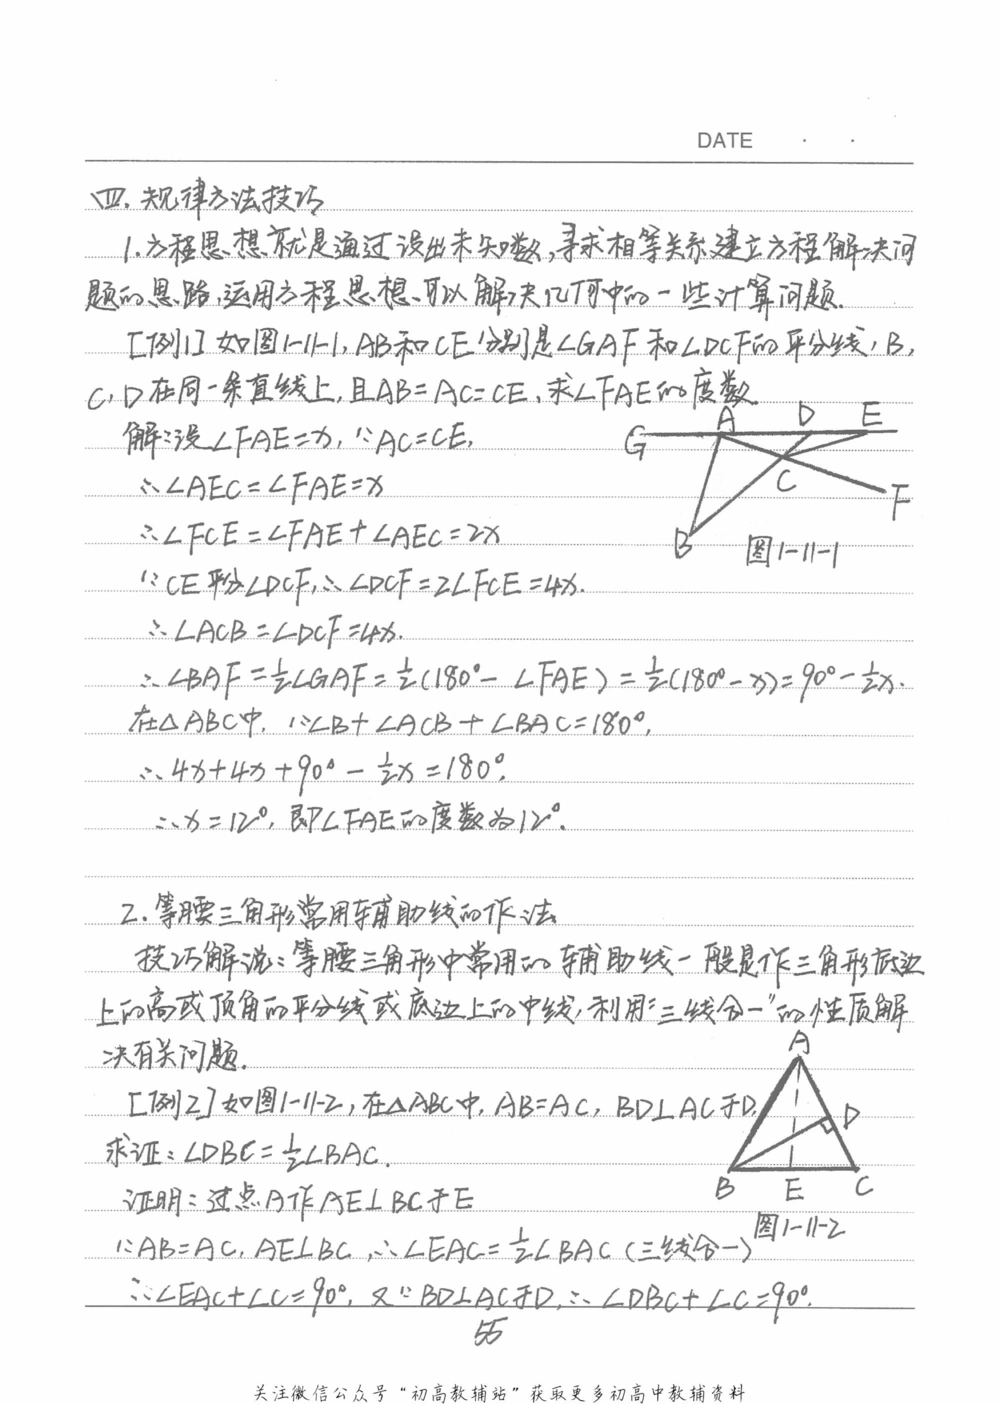 DATE · ·
四. 规律方法技巧
1.方程思想就是通过设出未知数,寻求相等关系,建立方程解决问
题的思路,运用方程思想可以解决几何中的一些计算问题.
[例1] 如图1-11-1, AB和CE分别是∠GAF和∠DCF的平分线, B,
C, D在同一条直线上,且AB=AC=CE,求∠FAE的度数.
解:设∠FAE=x, ∵AC=CE,
∴∠AEC=∠FAE=x
∴∠FCE=∠FAE+∠AEC=2x
∵CE平分∠DCF,∴∠DCF=2∠FCE=4x.
∴∠ACB=∠DCF=4x.
∴∠BAF=½∠GAF=½(180°-∠FAE)=½(180°-x)=90°-½x.
在△ABC中, ∵∠B+∠ACB+∠BAC=180°,
∴4x+4x+90°-½x=180°.
∴x=12°, 即∠FAE的度数为12°.
G A D E
C F
B
图1-11-1
2. 等腰三角形常用辅助线的作法
技巧解说:等腰三角形中常用的辅助线一般是作三角形底边
上的高或顶角的平分线或底边上的中线,利用“三线合一”的性质解
决有关问题.
[例2] 如图1-11-2, 在△ABC中, AB=AC, BD⊥AC于D.
求证:∠DBC=½∠BAC.
证明:过点A作AE⊥BC于E
∵AB=AC, AE⊥BC, ∴∠EAC=½∠BAC (三线合一)
∴∠EAC+∠C=90°, 又∵BD⊥AC于D, ∴∠DBC+∠C=90°.
A
D
B E C
图1-11-2
55
关注微信公众号“初高教辅站”获取更多初高中教辅资料